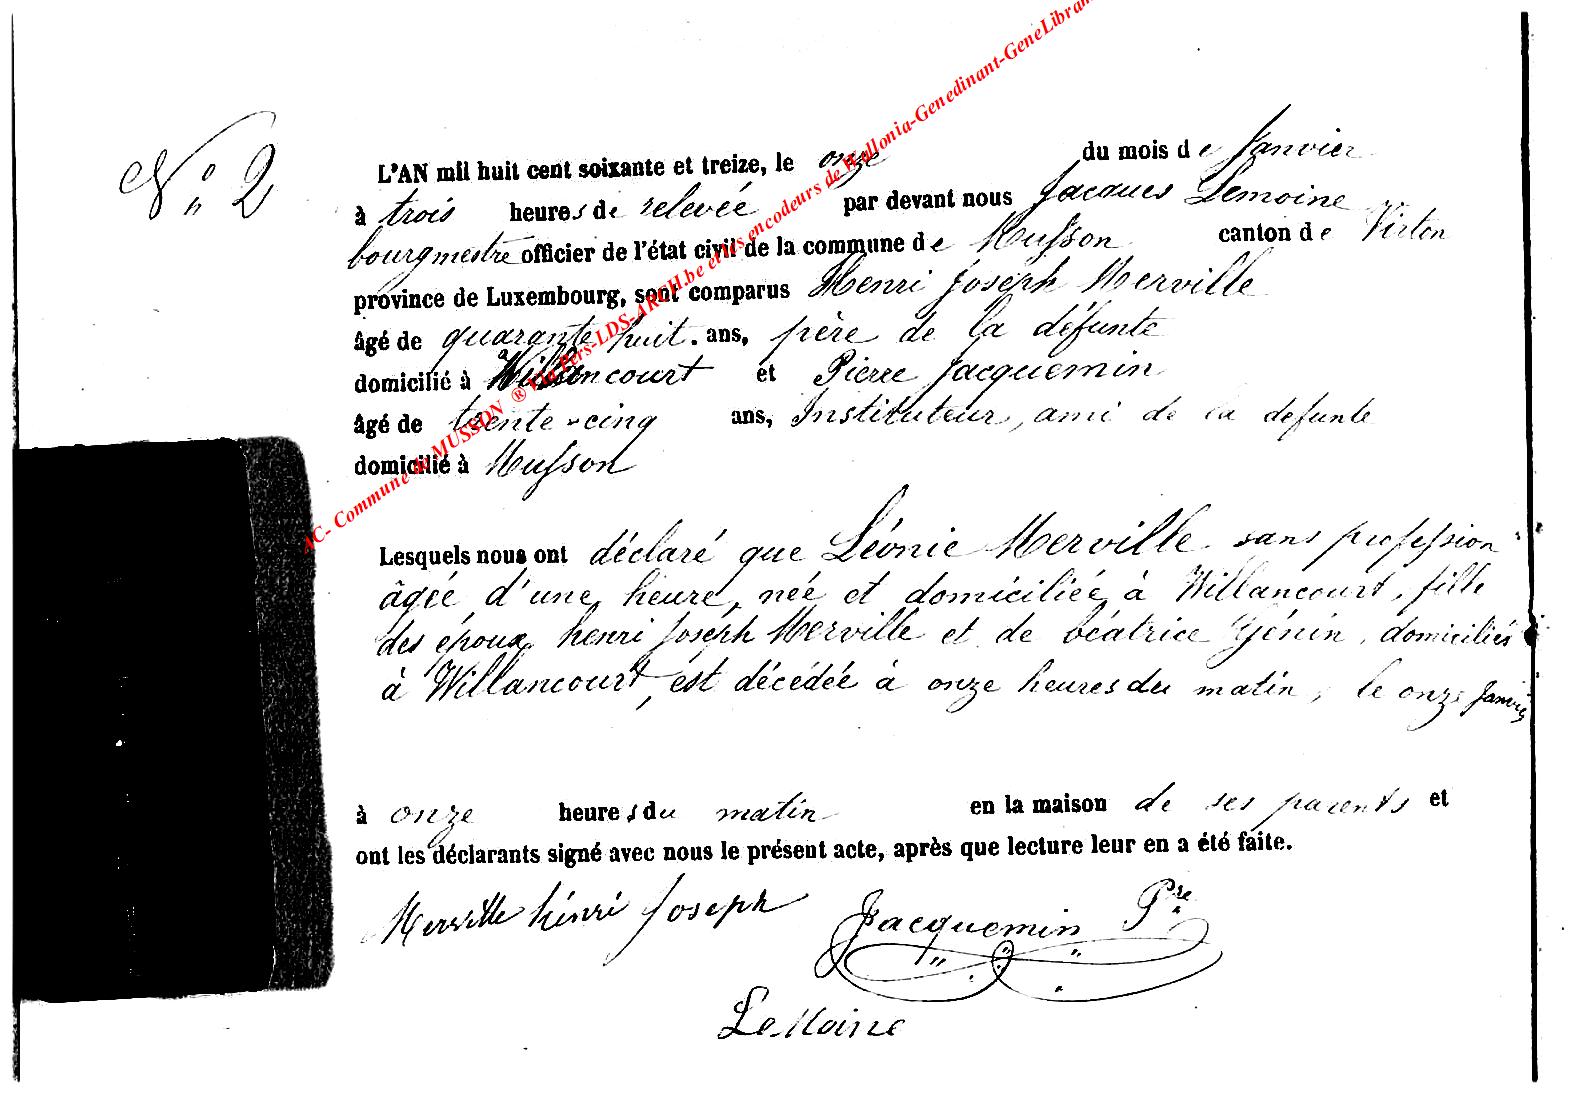 N° 2
L'AN mil huit cent soixante et treize, le onze du mois de Janvier
à trois heures de relevée par devant nous Jacques Lemoine
bourgmestre officier de l'état civil de la commune de Musson canton de Virton
province de Luxembourg, sont comparus Henri Joseph Merville
âgé de quarante huit. ans, père de la défunte
domicilié à Willancourt et Pierre Jacquemin
âgé de trente-cinq ans, Instituteur, ami de la defunte
domicilié à Musson
Lesquels nous ont déclaré que Léonie Merville sans profession
âgée d'une heure, née et domiciliée à Willancourt, fille
des époux henri Joseph Merville et de béatrice Génin, domiciliés
à Willancourt, est décédée à onze heures du matin, le onze Janvier
à onze heures du matin en la maison de ses parents et
ont les déclarants signé avec nous le présent acte, après que lecture leur en a été faite.
Merville hénri Joseph Jacquemin Pre
LeMoine
AC- Commune de MUSSON ® via Pers-LDS-ARCH.be et les encodeurs de Wallonia-Genedinant-GeneLibran